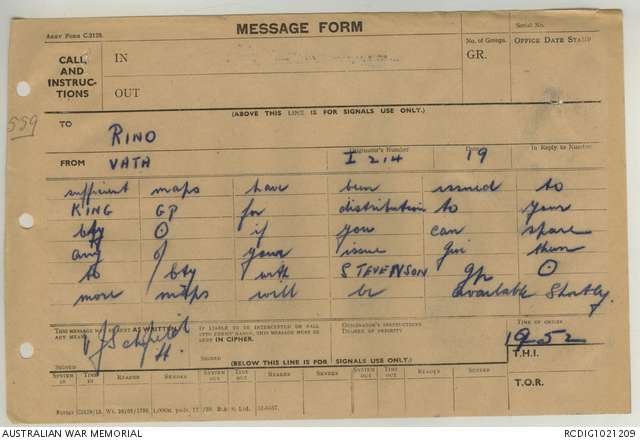 MESSAGE FORM
ARMY FORM C.2128.
Serial No.
CALL AND INSTRUCTIONS
IN
OUT
No. of Groups.
GR.
OFFICE DATE STAMP
(ABOVE THIS LINE IS FOR SIGNALS USE ONLY.)
559
TO RINO
FROM VATA
Originator's Number I 214
Date 19
In Reply to Number
sufficient maps have been issued to
KING GP for distribution to your
bty ⊙ if you can spare
any of your issue give them
to bty with STEVENSON gp ⊙
more maps will be available shortly
THIS MESSAGE MAY BE SENT AS WRITTEN BY ANY MEANS.
IF LIABLE TO BE INTERCEPTED OR FALL INTO ENEMY HANDS, THIS MESSAGE MUST BE SENT IN CIPHER.
ORIGINATOR'S INSTRUCTIONS
DEGREE OF PRIORITY
TIME OF ORIGIN
1952
SIGNED
SIGNED
(BELOW THIS LINE IS FOR SIGNALS USE ONLY.)
T.H.I.
SYSTEM IN TIME IN READER SENDER SYSTEM OUT TIME OUT READER SENDER SYSTEM OUT TIME OUT READER SENDER
T.O.R.
AUSTRALIAN WAR MEMORIAL
RCDIG1021209